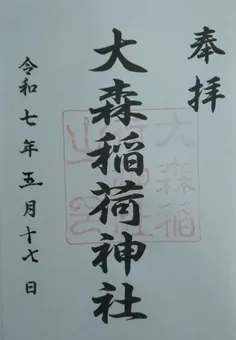 奉拝
大森稲荷神社
令和七年五月十七日